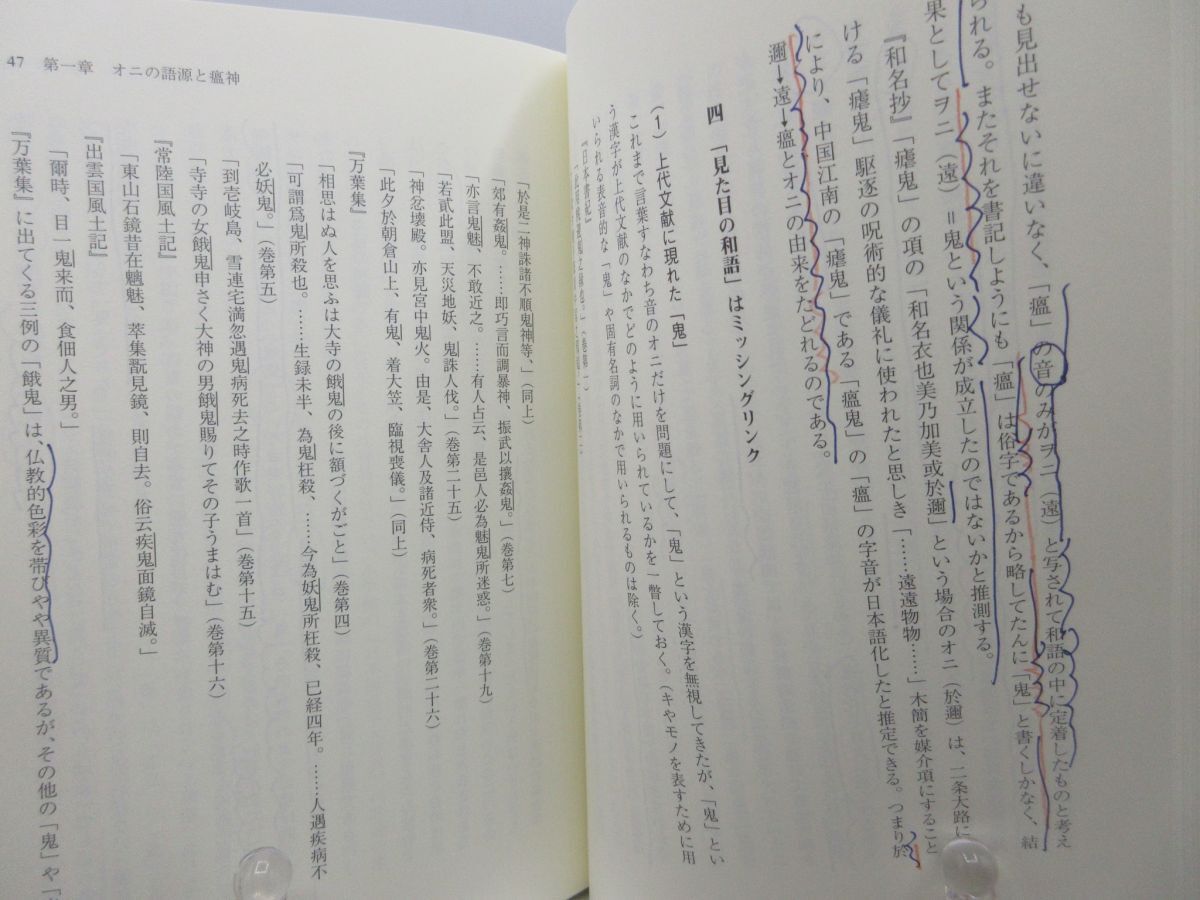 も見出せないに違いなく、「瘟」の音のみがヲニ（遠）と写されて和語の中に定着したものと考え
られる。またそれを書記しようにも「瘟」は俗字であるから略してたんに「鬼」と書くしかなく、結
果としてヲニ（遠）＝鬼という関係が成立したのではないかと推測する。
『和名抄』「瘧鬼」の項の「和名衣也美乃加美或於邇」という場合のオニ（於邇）は、二条大路に
ける「瘧鬼」駆逐の呪術的な儀礼に使われたと思しき「……遠遠物物……」木簡を媒介項にすること
により、中国江南の「瘧鬼」である「瘟鬼」の「瘟」の字音が日本語化したと推定できる。つまり於
邇→遠→瘟とオニの由来をたどれるのである。
四　「見た目の和語」はミッシングリンク
（1）上代文献に現れた「鬼」
これまで言葉すなわち音のオニだけを問題にして、「鬼」という漢字を無視してきたが、「鬼」とい
う漢字が上代文献のなかでどのように用いられているかを一瞥しておく。（キやモノを表すために用
いられる表音的な「鬼」や固有名詞のなかで用いられるものは除く。）
『日本書紀』
47　第一章　オニの語源と瘟神
「於是二神誅諸不順鬼神等、」（同上）
「郊有姦鬼。……即巧言而調暴神、振武以攘姦鬼。」（巻第七）
「亦言鬼魅、不敢近之。……有人占云、是邑人必為魅鬼所迷惑。」（巻第十九）
「若弐此盟、天災地妖、鬼誅人伐。」（巻第二十五）
「神忿壊殿。亦見宮中鬼火。由是、大舎人及諸近侍、病死者衆。」（巻第二十六）
「此夕於朝倉山上、有鬼、着大笠、臨視喪儀。」（同上）
『万葉集』
「相思はぬ人を思ふは大寺の餓鬼の後に額づくがごと」（巻第四）
「可謂爲鬼所殺也。……生録未半、為鬼枉殺、……今為妖鬼所枉殺、已経四年。……人遇疾病不
必妖鬼。」（巻第五）
「到壱岐島、雪連宅満忽遇鬼病死去之時作歌一首」（巻第十五）
「寺寺の女餓鬼申さく大神の男餓鬼賜りてその子うまはむ」（巻第十六）
『常陸国風土記』
「東山石鏡昔在魑魅、萃集翫見鏡、則自去。俗云疾鬼面鏡自滅。」
『出雲国風土記』
「爾時、目一鬼来而、食佃人之男。」
『万葉集』に出てくる三例の「餓鬼」は、仏教的色彩を帯びやや異質であるが、その他の「鬼」や